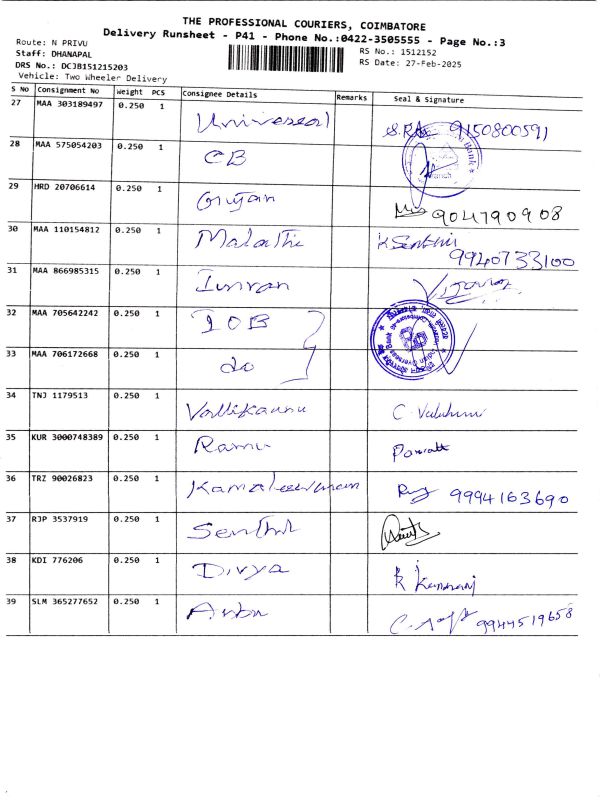 THE PROFESSIONAL COURIERS, COIMBATORE
Delivery Runsheet - P41 - Phone No.:0422-3505555 - Page No.:3
Route: N PRIVU
RS No.: 1512152
Staff: DHANAPAL
RS Date: 27-Feb-2025
DRS No.: DCJB151215203
Vehicle: Two Wheeler Delivery
S No Consignment No Weight PCS Consignee Details Remarks Seal & Signature
27 MAA 303189497 0.250 1 Universal 9150800591
28 MAA 575054203 0.250 1 CB
29 HRD 20706614 0.250 1 Gunjan 904790908
30 MAA 110154812 0.250 1 Malathi K Senthil 9940733100
31 MAA 866985315 0.250 1 Imran
32 MAA 705642242 0.250 1 IOB
33 MAA 706172668 0.250 1 do
34 TNJ 1179513 0.250 1 Vallikannu
35 KUR 3000748389 0.250 1 Ramu
36 TRZ 90026823 0.250 1 Kamaleswaran 9994163690
37 RJP 3537919 0.250 1 Senthil
38 KDI 776206 0.250 1 Divya
39 SLM 365277652 0.250 1 9944519658